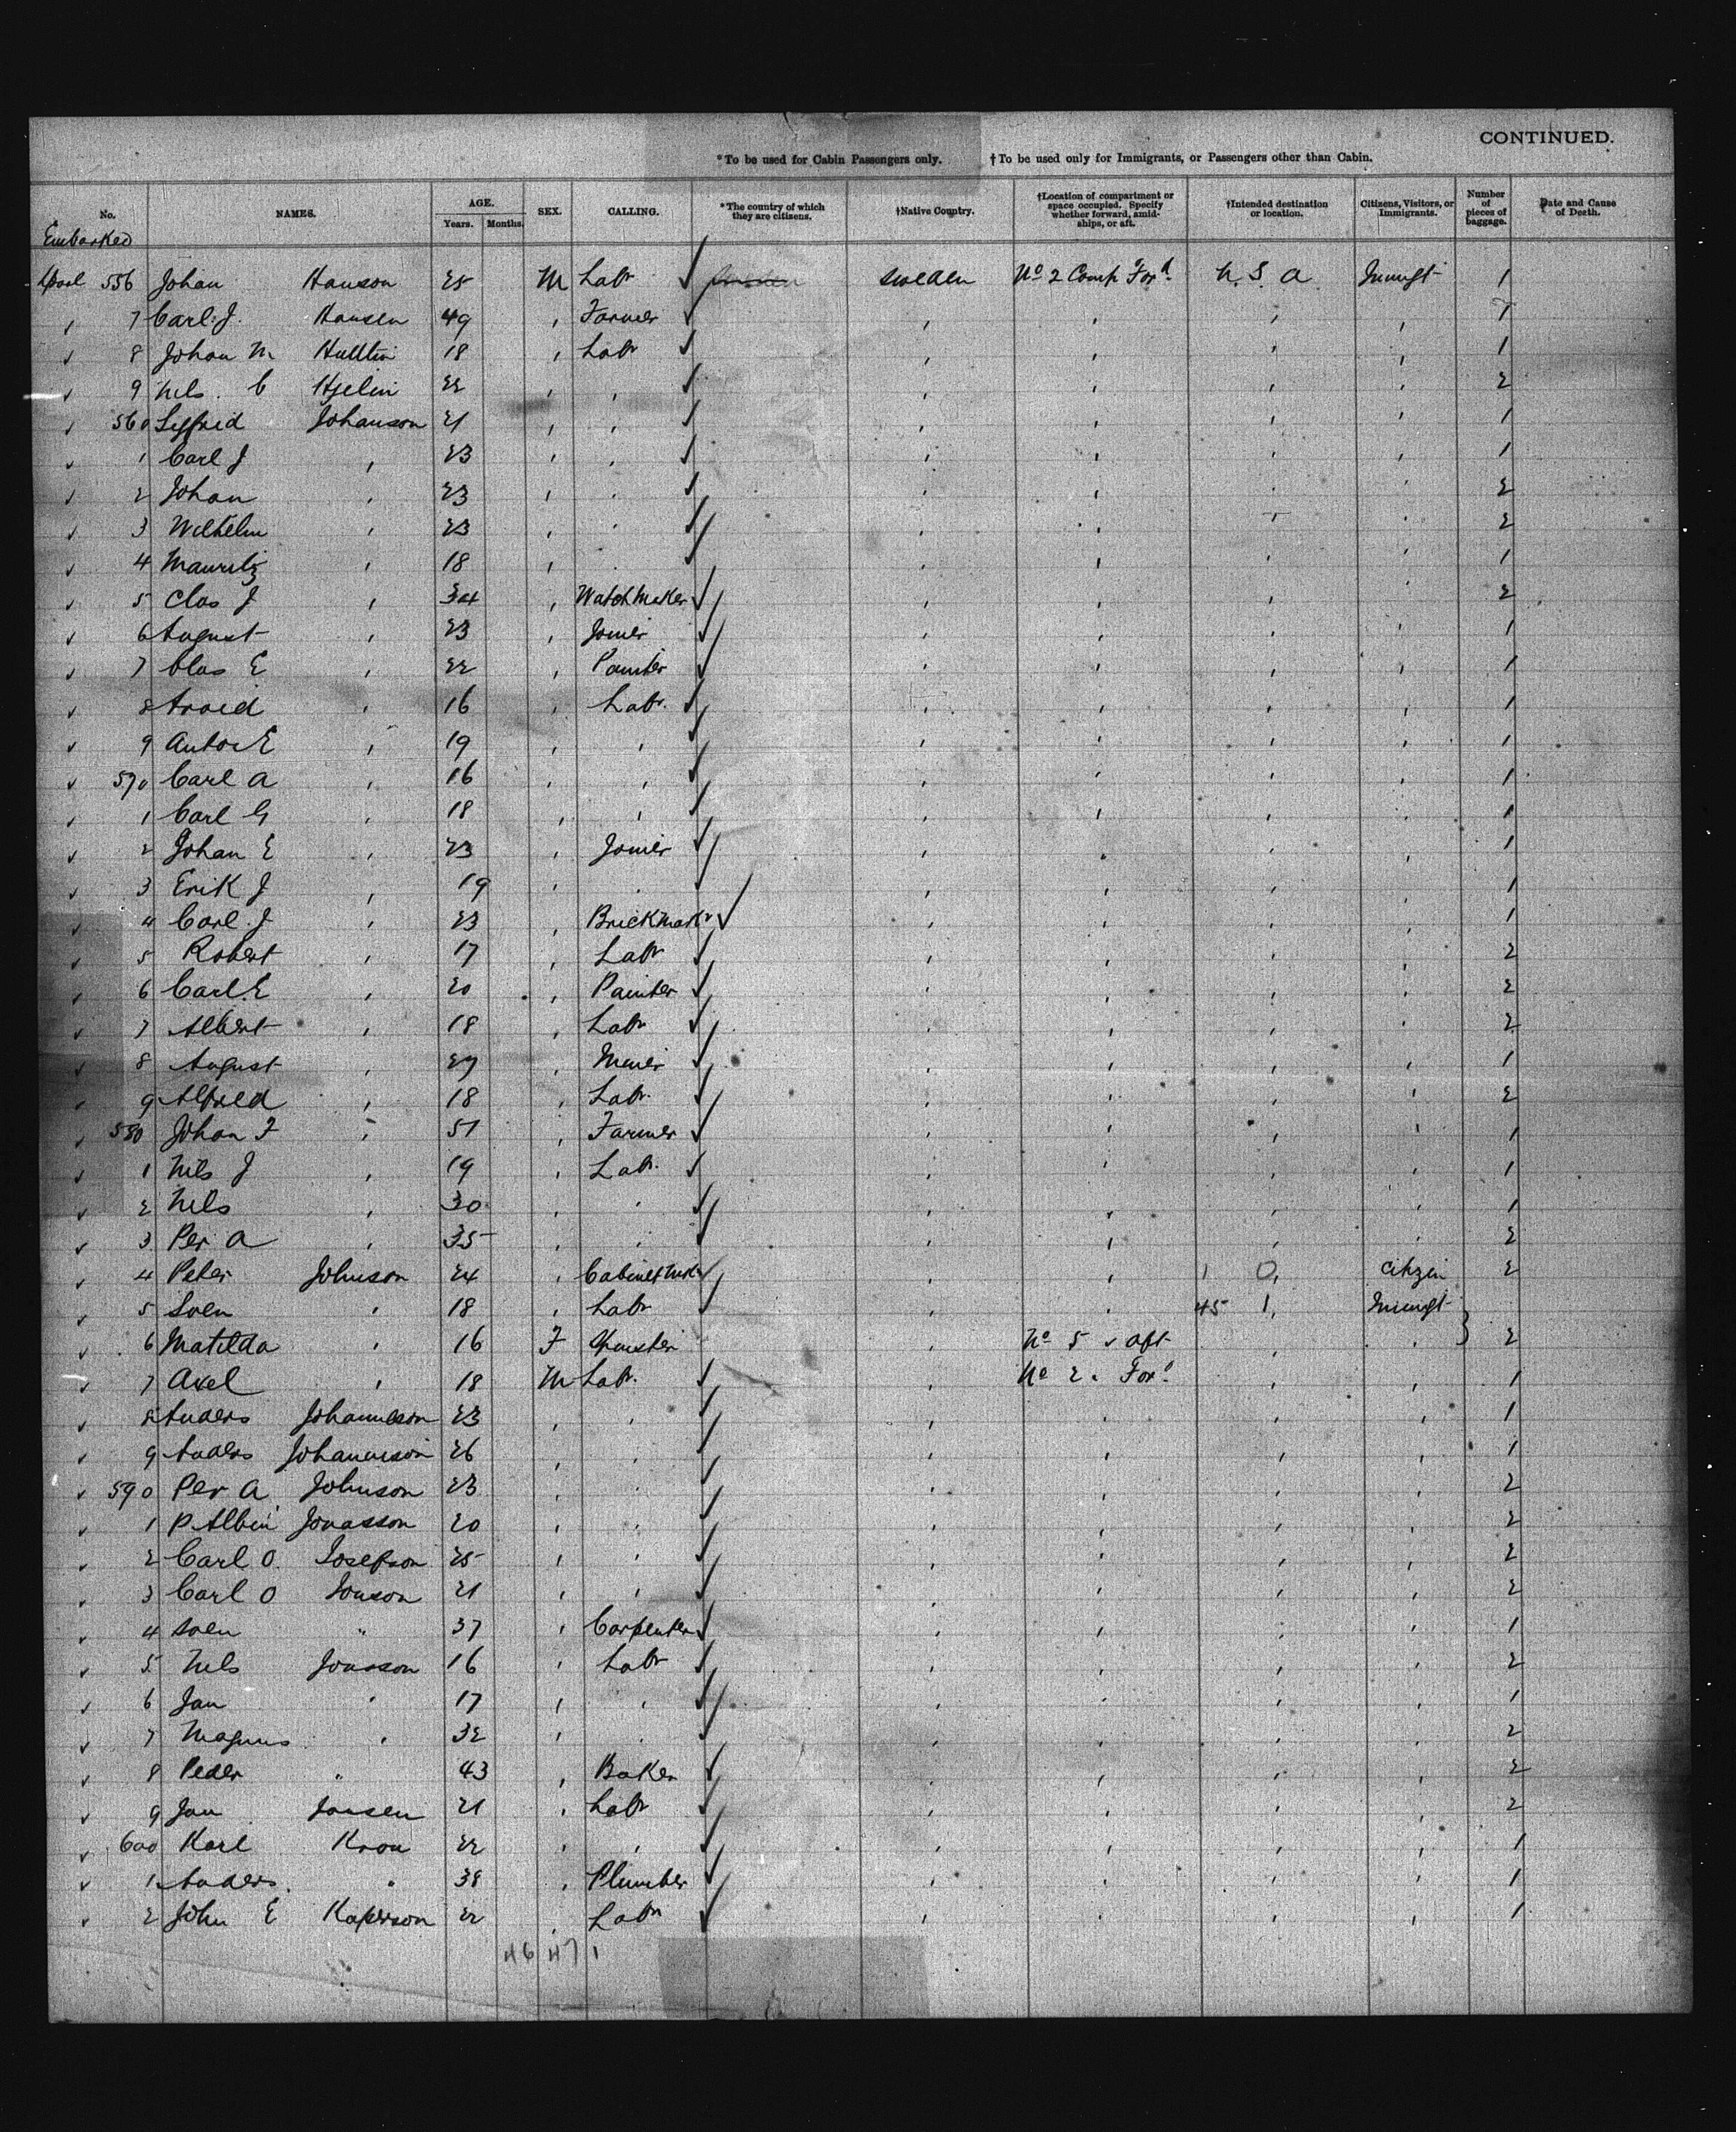 CONTINUED.
*To be used for Cabin Passengers only. †To be used only for Immigrants, or Passengers other than Cabin.
No. NAMES. AGE. Years. Months. SEX. CALLING. *The country of which they are citizens. †Native Country. †Location of compartment or space occupied. Specify whether forward, amidships, or aft. †Intended destination or location. Citizens, Visitors, or Immigrants. Number of pieces of baggage. Date and Cause of Death.
Embarked
Lpool 556 Johan Hanson 25 M Labr Sweden No 2 Comp Ford U.S.A. Immgt 1
" 7 Carl J. Hansen 49 " Farmer " " " " 1
" 8 Johan M Hulltin 18 " Labr " " " " 1
" 9 Nels. C Hjelm 22 " " " " " " 2
" 560 Sigfrid Johanson 21 " " " " " " 1
" 1 Carl J " 23 " " " " " " 1
" 2 Johan " 23 " " " " " " 2
" 3 Wilhelm " 23 " " " " " " 2
" 4 Mauritz " 18 " " " " " " 1
" 5 Clas J " 34 " Watchmaker " " " " 2
" 6 August " 23 " Joiner " " " " 1
" 7 Clas E " 22 " Painter " " " " 1
" 8 Arvid " 16 " Labr. " " " " 1
" 9 Anton E " 19 " " " " " " 1
" 570 Carl A " 16 " " " " " " 1
" 1 Carl G " 18 " " " " " " 1
" 2 Johan E " 23 " Joiner " " " " 1
" 3 Erik J " 19 " " " " " " 1
" 4 Carl J " 23 " Brickmakr " " " " 1
" 5 Robert " 17 " Labr " " " " 2
" 6 Carl E " 20 " Painter " " " " 2
" 7 Albert " 18 " Labr " " " " 2
" 8 August " 27 " Miner " " " " 1
" 9 Alfred " 18 " Labr. " " " " 2
" 580 Johan F " 51 " Farmer " " " " 1
" 1 Nils J " 19 " Labr. " " " " 1
" 2 Nels " 30 " " " " " " 1
" 3 Per A " 35 " " " " " " 2
" 4 Peter Johnson 24 " Cabinetmkr " " 1 0 " Citizen 2
" 5 Sven " 18 " Labr " " 45 1 " Immgt
" 6 Matilda " 16 F Spinster No 5 " Aft " " } 2
" 7 Axel " 18 M Labr. " No 2 " Ford " " 1
" 8 Anders Johannesson 23 " " " " " " 1
" 9 Anders Johanneson 26 " " " " " " 1
" 590 Per A Johnson 23 " " " " " " 2
" 1 P Albin Jonasson 20 " " " " " " 2
" 2 Carl O. Josefson 25 " " " " " " 2
" 3 Carl O Jonson 21 " " " " " " 2
" 4 Sven " 37 " Carpenter " " " " 1
" 5 Nels Jonsson 16 " Labr " " " " 2
" 6 Jan " 17 " " " " " " 1
" 7 Magnus " 32 " " " " " " 2
" 8 Peder " 43 " Baker " " " " 2
" 9 Jan Jansen 21 " Labr " " " " 2
" 600 Karl Kron 22 " " " " " " 1
" 1 Anders " 38 " Plumber " " " " 1
" 2 John E Kaperson 22 " Labr " " " " 1
46 47 1